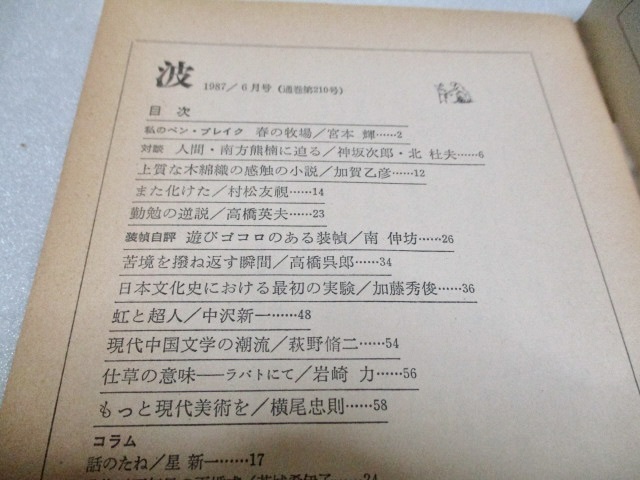 波 1987／6月号（通巻第210号）
目次
私のペン・ブレイク 春の牧場／宮本 輝……2
対談 人間・南方熊楠に迫る／神坂次郎・北 杜夫……6
上質な木綿織の感触の小説／加賀乙彦……12
また化けた／村松友視……14
勤勉の逆説／高橋英夫……23
装幀自評 遊びゴコロのある装幀／南 伸坊……26
苦境を撥ね返す瞬間／高橋呉郎……34
日本文化史における最初の実験／加藤秀俊……36
虹と超人／中沢新一……48
現代中国文学の潮流／萩野脩二……54
仕草の意味──ラバトにて／岩崎 力……56
もっと現代美術を／横尾忠則……58
コラム
話のたね／星 新一……17